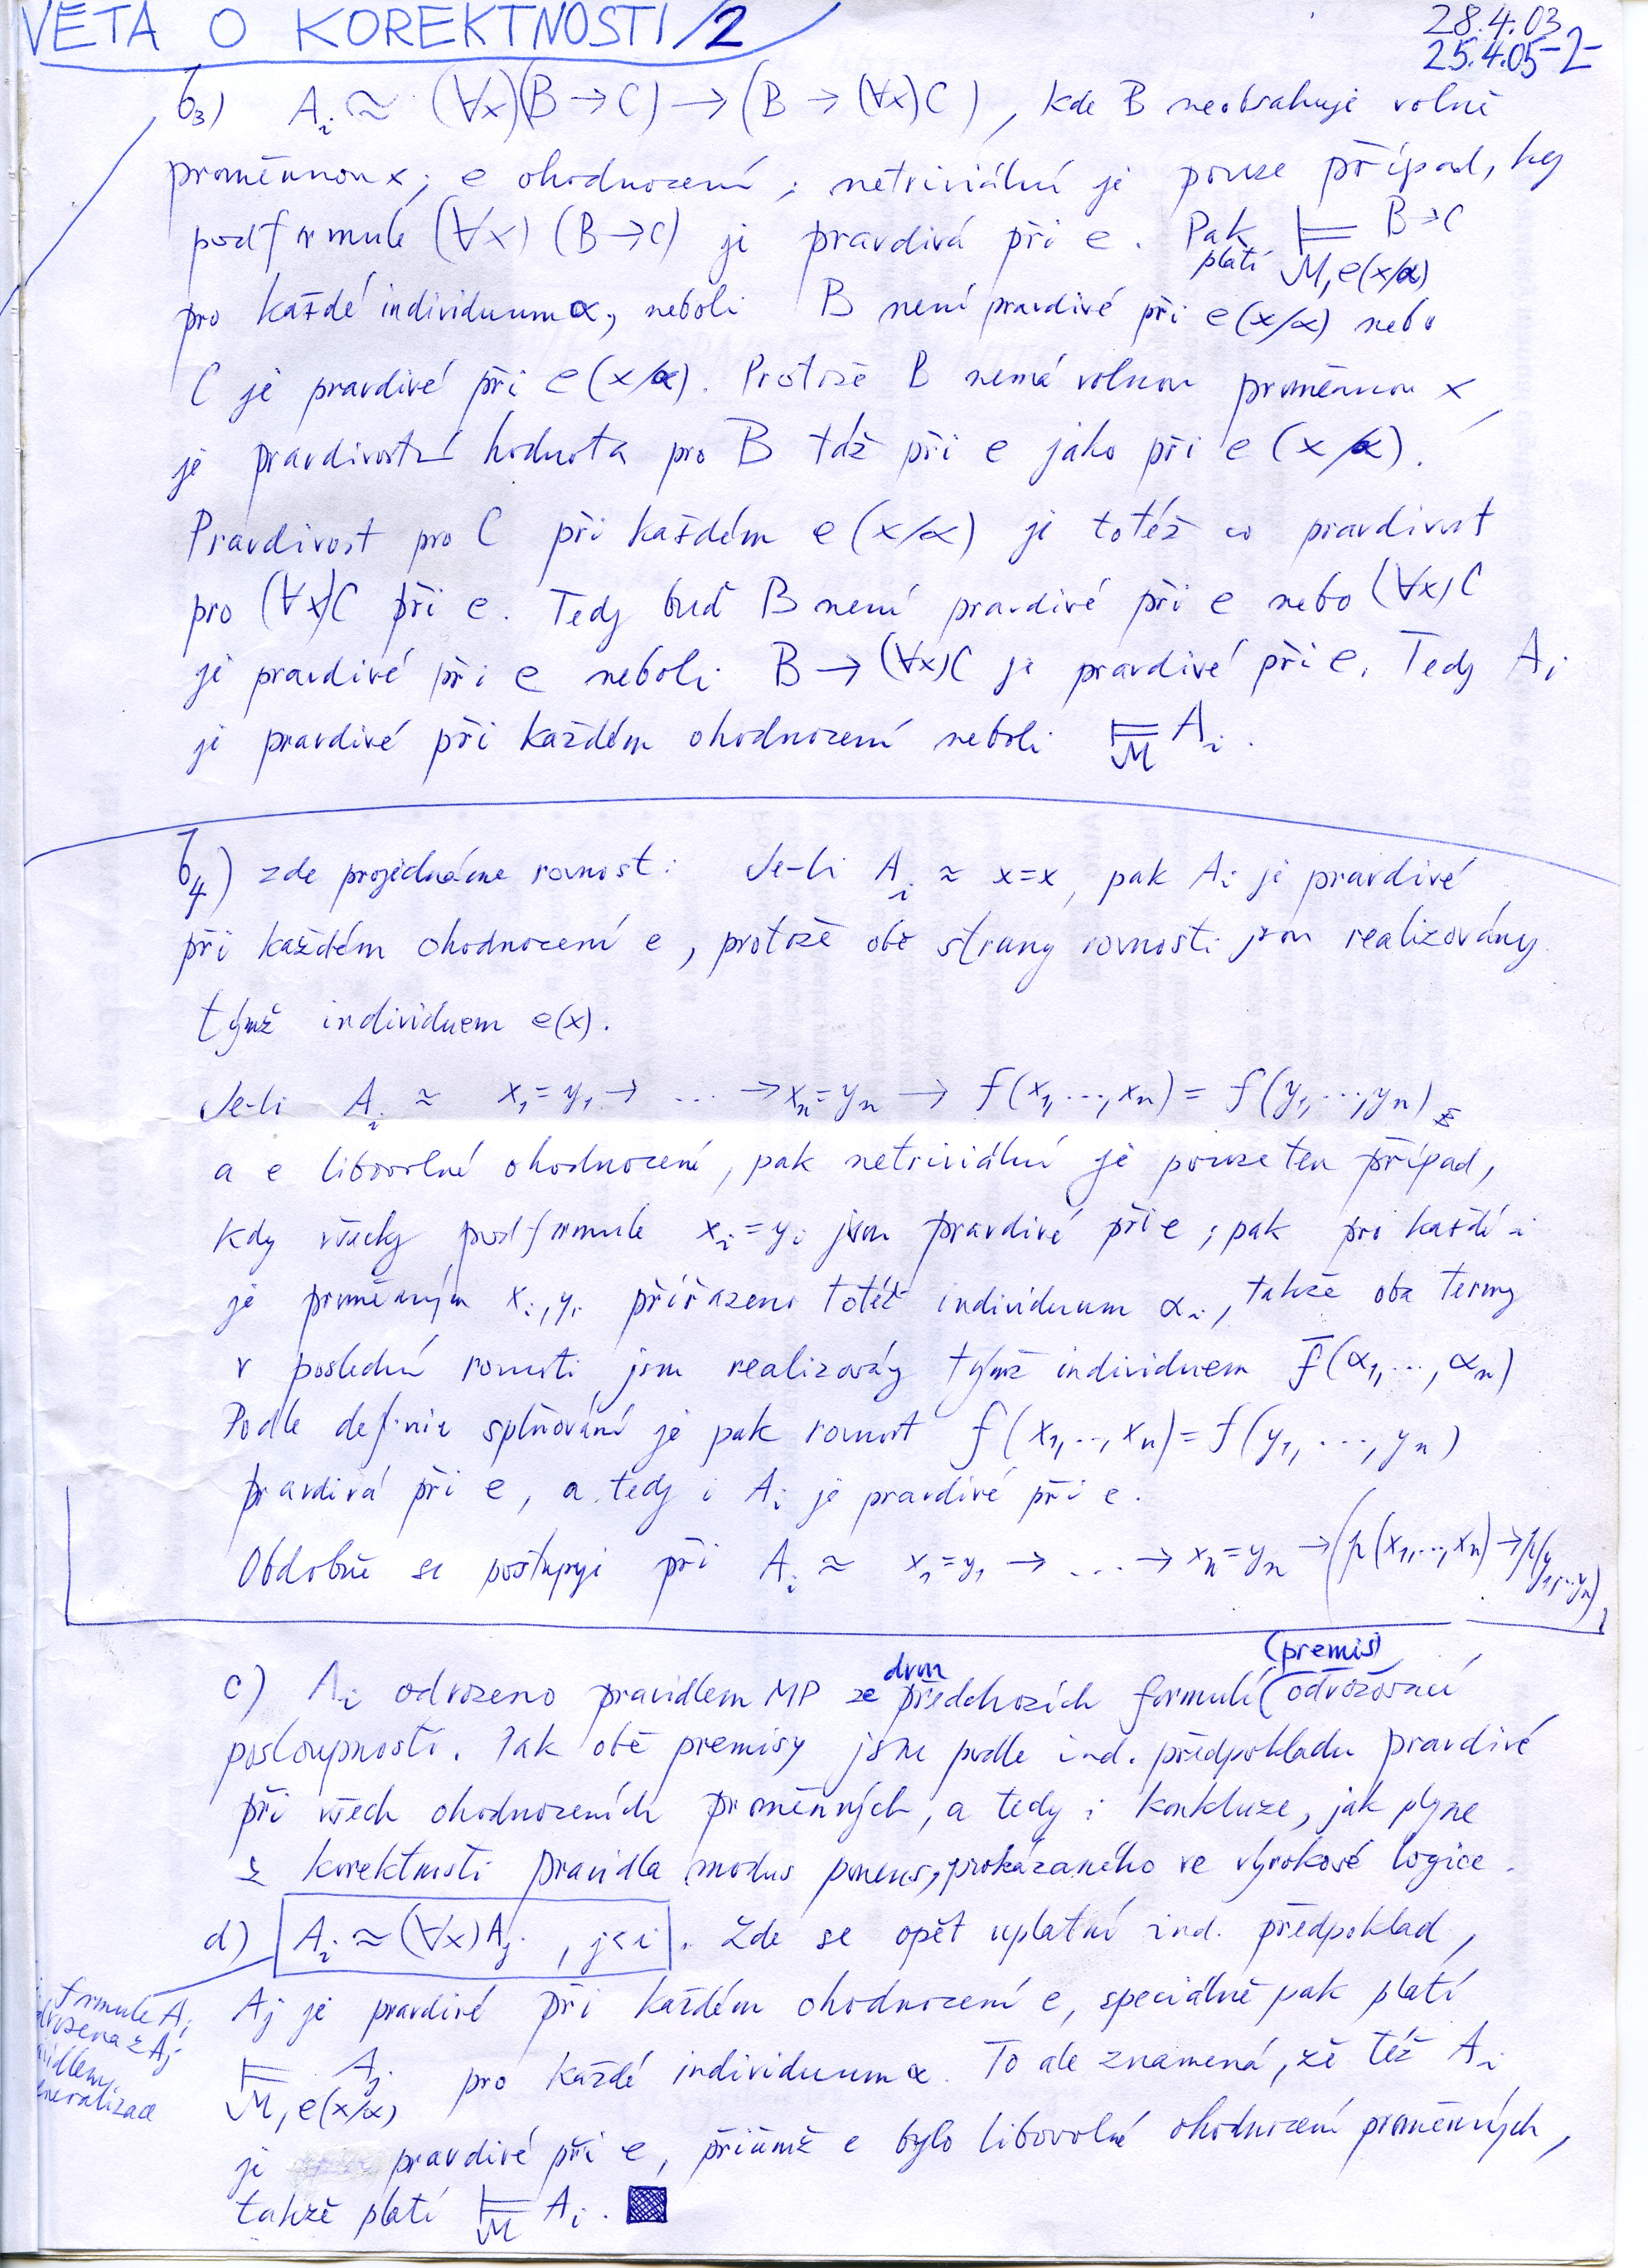 VĚTA O KOREKTNOSTI /2
28.4.03
25.4.05 -2-
b₃) Aᵢ ≈ (∀x)(B → C) → (B → (∀x)C), kde B neobsahuje volně
proměnnou x; e ohodnocení; netriviální je pouze případ, kdy
podformule (∀x)(B→C) je pravdivá při e. Pak platí ⊨ B→C
M, e(x/α)
pro každé individuum α, neboli B není pravdivé při e(x/α) nebo
C je pravdivé při e(x/α). Protože B nemá volnou proměnnou x,
je pravdivostní hodnota pro B táž při e jako při e(x/α).
Pravdivost pro C při každém e(x/α) je totéž co pravdivost
pro (∀x)C při e. Tedy buď B není pravdivé při e nebo (∀x)C
je pravdivé při e neboli B → (∀x)C je pravdivé při e. Tedy Aᵢ
je pravdivé při každém ohodnocení neboli ⊨ Aᵢ.
M
b₄) zde projednáme rovnost: Je-li Aᵢ ≈ x=x, pak Aᵢ je pravdivé
při každém ohodnocení e, protože obě strany rovnosti jsou realizovány
týmž individuem e(x).
Je-li Aᵢ ≈ x₁=y₁ → ... → xₙ=yₙ → f(x₁,...,xₙ) = f(y₁,...,yₙ)
a e libovolné ohodnocení, pak netriviální je pouze ten případ,
kdy všecky podformule xᵢ=yᵢ jsou pravdivé při e; pak pro každé i
je proměnným xᵢ, yᵢ přiřazeno totéž individuum αᵢ, takže oba termy
v poslední rovnosti jsou realizovány týmž individuem f̄(α₁,...,αₙ)
Podle definice splňování je pak rovnost f(x₁,...,xₙ) = f(y₁,...,yₙ)
pravdivá při e, a tedy i Aᵢ je pravdivé při e.
Obdobně se postupuje při Aᵢ ≈ x₁=y₁ → ... → xₙ=yₙ → (p(x₁,...,xₙ) → p(y₁,...,yₙ)).
c) Aᵢ odvozeno pravidlem MP ze dvou předchozích formulí (premis) odvozovací
posloupnosti. Pak obě premisy jsou podle ind. předpokladu pravdivé
při všech ohodnoceních proměnných, a tedy i konkluze, jak plyne
z korektnosti pravidla modus ponens, prokázaného ve výrokové logice.
d) Aᵢ ≈ (∀x)Aⱼ, j<i. Zde se opět uplatní ind. předpoklad,
Aⱼ je pravdivé při každém ohodnocení e, speciálně pak platí
⊨ Aⱼ pro každé individuum α. To ale znamená, že též Aᵢ
M, e(x/α)
je pravdivé při e, přičemž e bylo libovolné ohodnocení proměnných,
takže platí ⊨ Aᵢ.
M
formule Aᵢ
z Aⱼ